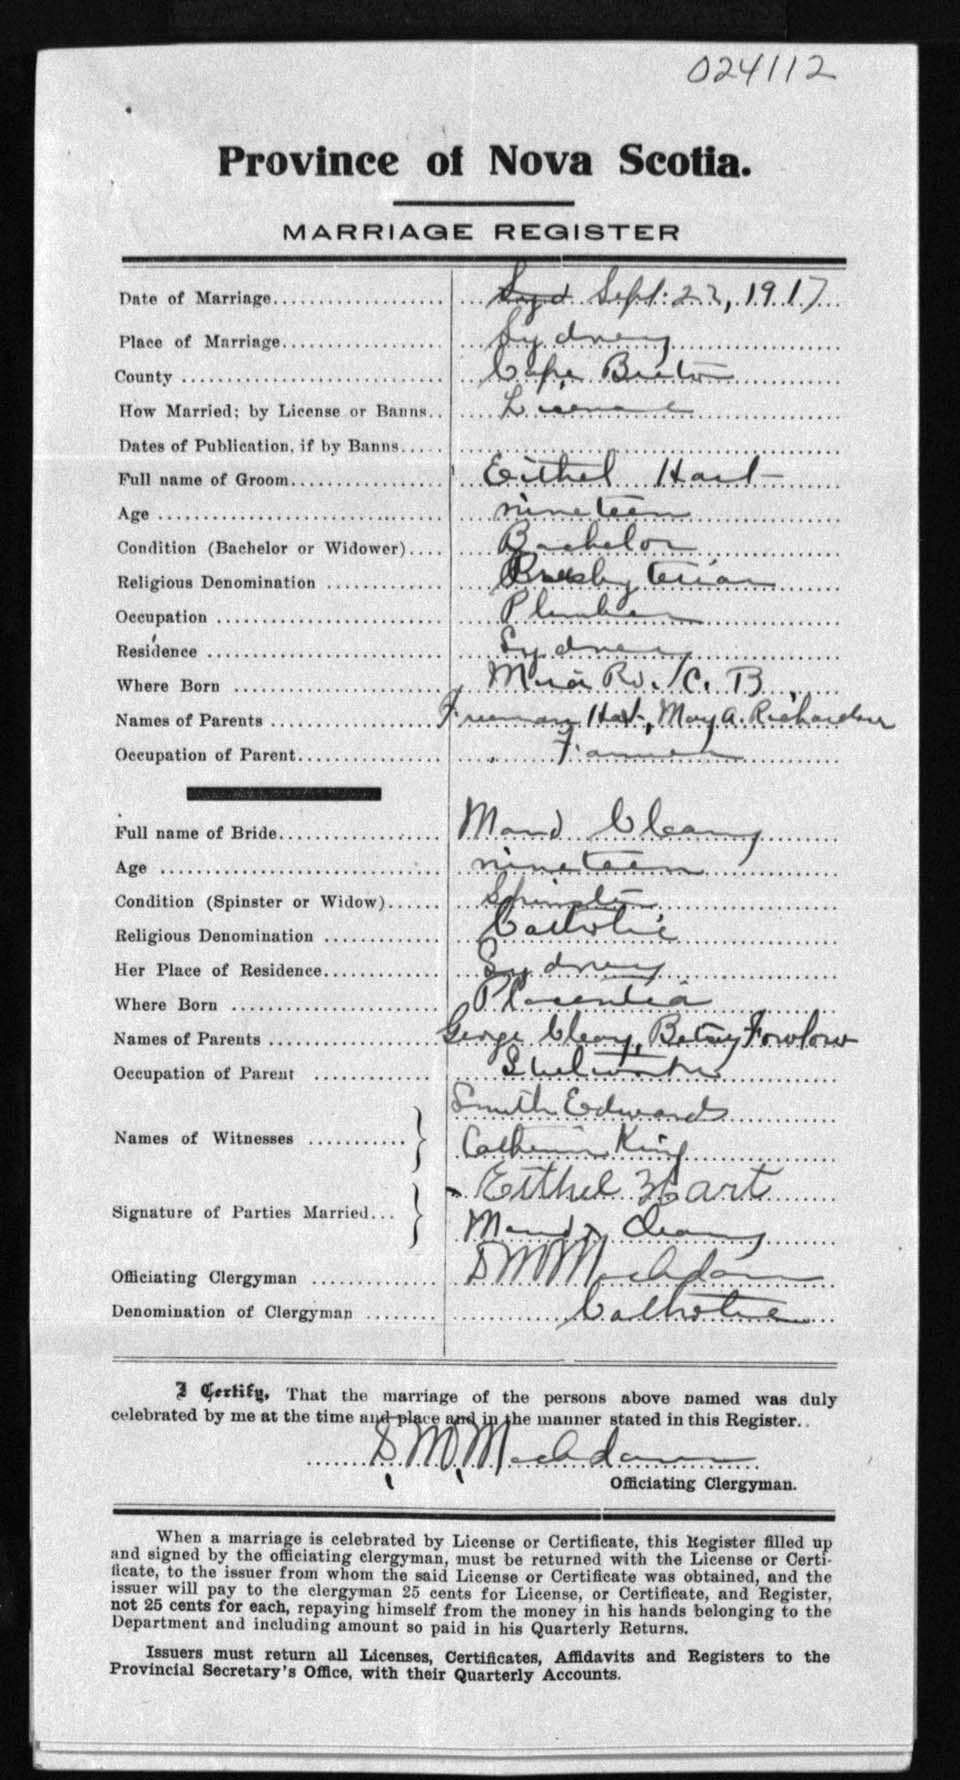 024112
Province of Nova Scotia.
MARRIAGE REGISTER
Date of Marriage Syd Sept: 22, 1917
Place of Marriage Sydney
County Cape Breton
How Married; by License or Banns License
Dates of Publication, if by Banns
Full name of Groom Eithel Hart
Age nineteen
Condition (Bachelor or Widower) Bachelor
Religious Denomination Presbyterian
Occupation Plumber
Residence Sydney
Where Born Mira Rd. C. B.
Names of Parents Freeman Hart, Mary A. Richardson
Occupation of Parent Farmer
Full name of Bride Maud Cleary
Age nineteen
Condition (Spinster or Widow) Spinster
Religious Denomination Catholic
Her Place of Residence Sydney
Where Born Placentia
Names of Parents George Cleary, Betsy Fowlow
Occupation of Parent
Smith Edwards
Names of Witnesses
Catherine King
Eithel Hart
Signature of Parties Married
Maud Cleary
Officiating Clergyman D M MacAdam
Denomination of Clergyman Catholic
I Certify, That the marriage of the persons above named was duly
celebrated by me at the time and place and in the manner stated in this Register.
D. M. MacAdam
Officiating Clergyman.
When a marriage is celebrated by License or Certificate, this Register filled up
and signed by the officiating clergyman, must be returned with the License or Certi-
ficate, to the issuer from whom the said License or Certificate was obtained, and the
issuer will pay to the clergyman 25 cents for License, or Certificate, and Register,
not 25 cents for each, repaying himself from the money in his hands belonging to the
Department and including amount so paid in his Quarterly Returns.
Issuers must return all Licenses, Certificates, Affidavits and Registers to the
Provincial Secretary's Office, with their Quarterly Accounts.